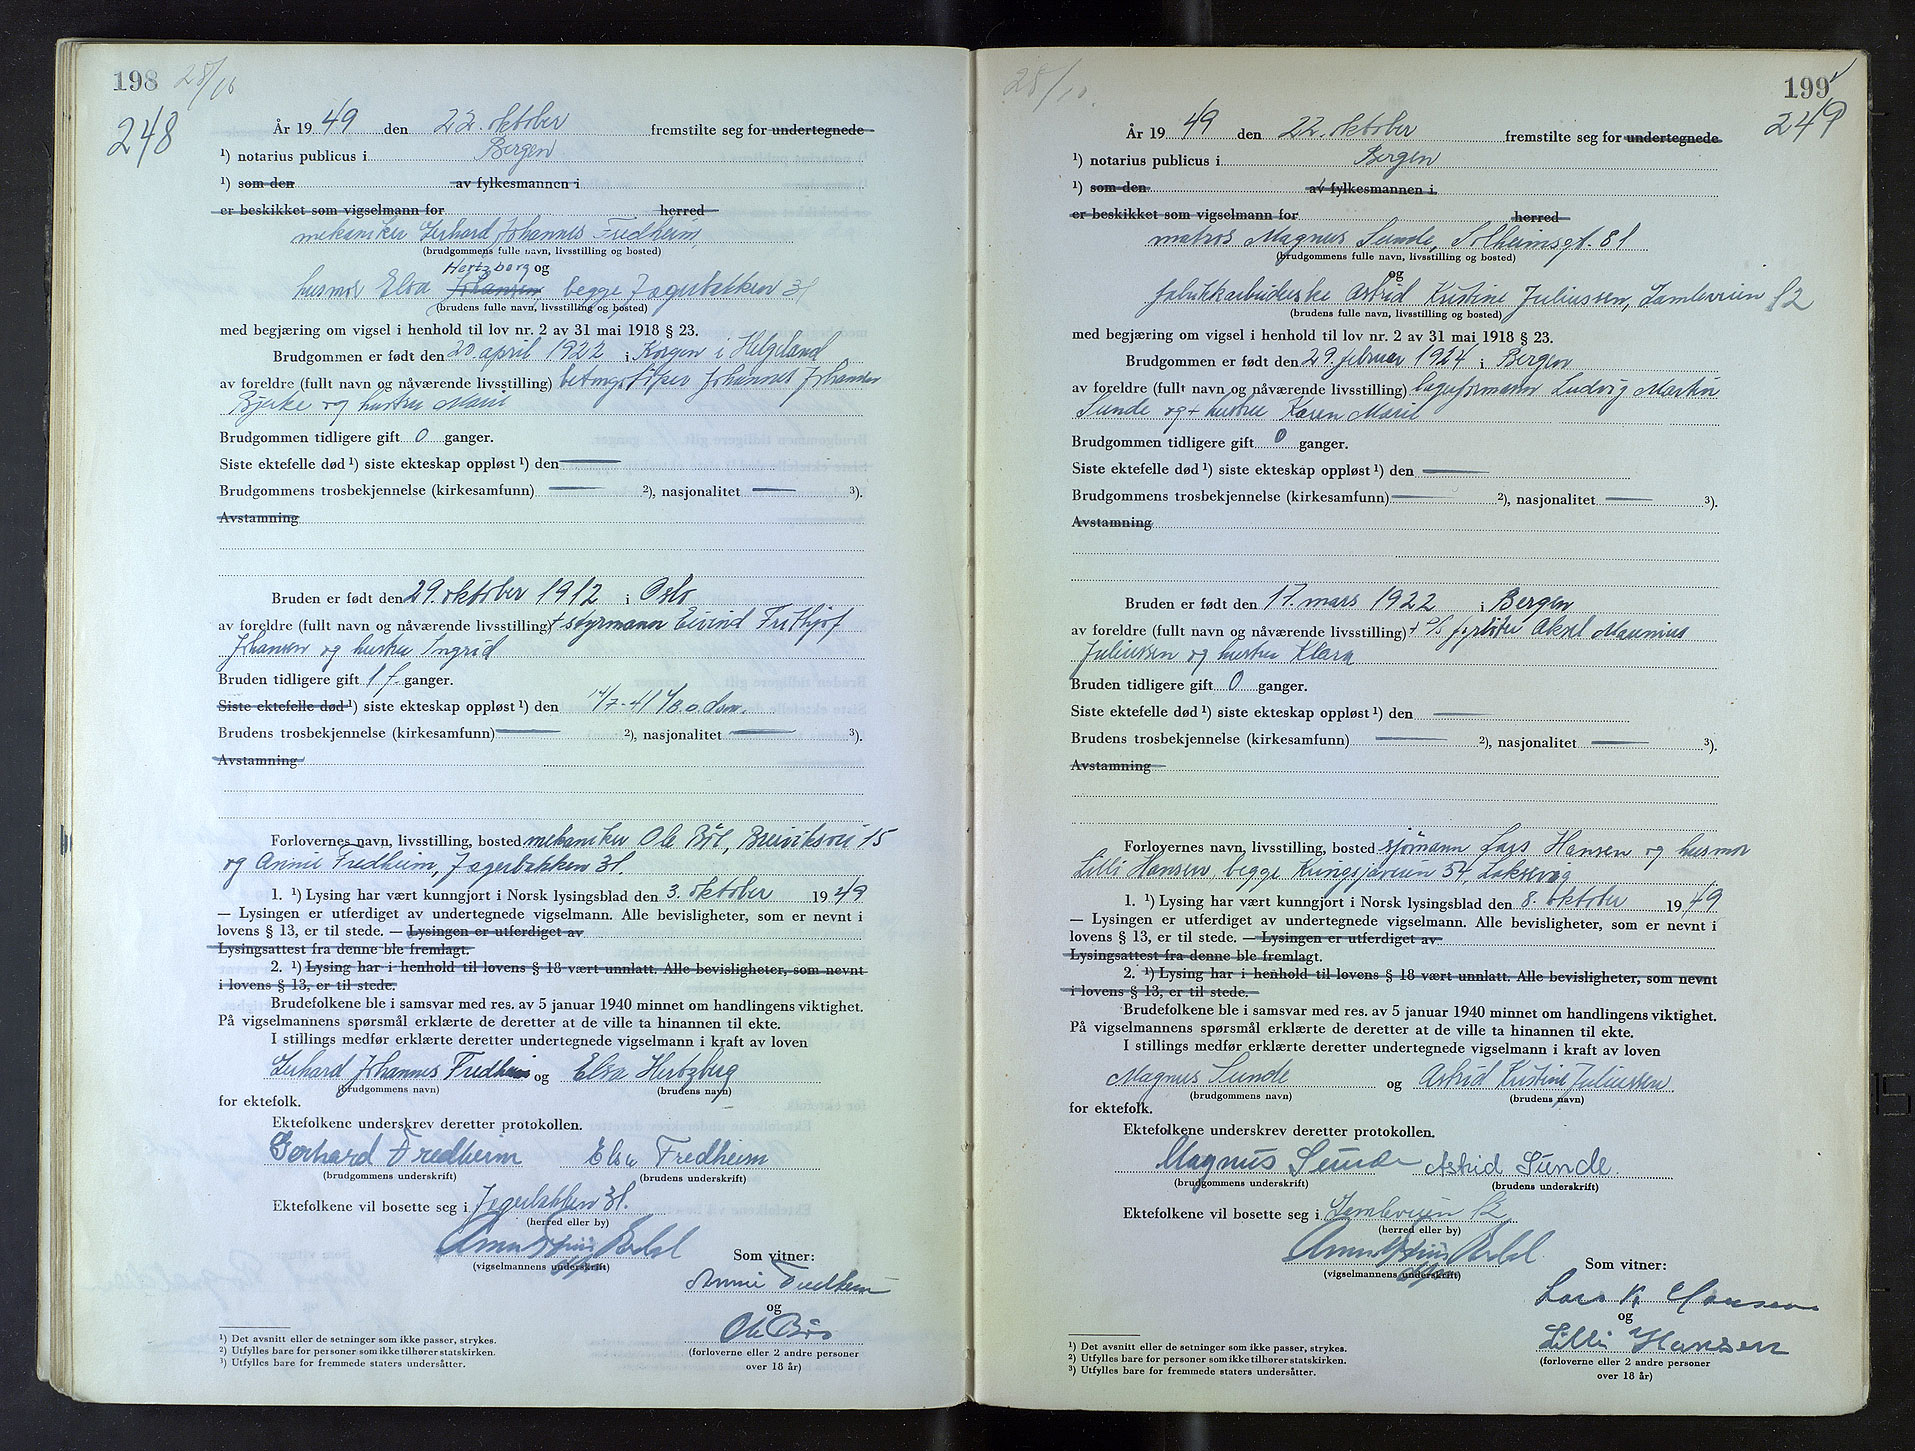 198 28/10
248
År 1949 den 22. oktober fremstilte seg for undertegnede
¹) notarius publicus i Bergen
¹) som den av fylkesmannen i
er beskikket som vigselmann for herred
mekaniker Gerhard Johannes Fredheim
(brudgommens fulle navn, livsstilling og bosted)
Hertzberg og
husmor Elsa Johansen, begge Jægerbakken 31
(brudens fulle navn, livsstilling og bosted)
med begjæring om vigsel i henhold til lov nr. 2 av 31 mai 1918 § 23.
Brudgommen er født den 20. april 1922 i Korgen i Helgeland
av foreldre (fullt navn og nåværende livsstilling) Johannes Johansen
Bjerke og hustru Marie
Brudgommen tidligere gift 0 ganger.
Siste ektefelle død ¹) siste ekteskap oppløst ¹) den
Brudgommens trosbekjennelse (kirkesamfunn) ²), nasjonalitet ³).
Avstamning
Bruden er født den 29. oktober 1912 i Oslo
av foreldre (fullt navn og nåværende livsstilling) + styrmann Eivind Fritjof
Johansen og hustru Ingrid
Bruden tidligere gift 1 f. ganger.
Siste ektefelle død ¹) siste ekteskap oppløst ¹) den 14/7-41
Brudens trosbekjennelse (kirkesamfunn) ²), nasjonalitet ³).
Avstamning
Forlovernes navn, livsstilling, bosted mekaniker Ole Bøe, Breiviksvei 15
og Annie Fredheim, Jægerbakken 31.
1. ¹) Lysing har vært kunngjort i Norsk lysingsblad den 3. oktober 1949
— Lysingen er utferdiget av undertegnede vigselmann. Alle bevisligheter, som er nevnt i
lovens § 13, er til stede. — Lysingen er utferdiget av
Lysingsattest fra denne ble fremlagt.
2. ¹) Lysing har i henhold til lovens § 18 vært unnlatt. Alle bevisligheter, som nevnt
i lovens § 13, er til stede.
Brudefolkene ble i samsvar med res. av 5 januar 1940 minnet om handlingens viktighet.
På vigselmannens spørsmål erklærte de deretter at de ville ta hinannen til ekte.
I stillings medfør erklærte deretter undertegnede vigselmann i kraft av loven
Gerhard Johannes Fredheim og Elsa Hertzberg
(brudgommens navn) (brudens navn)
for ektefolk.
Ektefolkene underskrev deretter protokollen.
Gerhard Fredheim Elsa Fredheim
(brudgommens underskrift) (brudens underskrift)
Ektefolkene vil bosette seg i Jægerbakken 31.
(herred eller by)
(vigselmannens underskrift)
Som vitner:
Annie Fredheim
og
Ole Bøe
(forloverne eller 2 andre personer
over 18 år)
¹) Det avsnitt eller de setninger som ikke passer, strykes.
²) Utfylles bare for personer som ikke tilhører statskirken.
³) Utfylles bare for fremmede staters undersåtter.
28/10
199
249
År 1949 den 22. oktober fremstilte seg for undertegnede
¹) notarius publicus i Bergen
¹) som den av fylkesmannen i
er beskikket som vigselmann for herred
matros Magnus Sunde, Solheimsgt. 81
(brudgommens fulle navn, livsstilling og bosted)
og
fabrikkarbeiderske Astrid Kristine Juliussen, Damsveien 12
(brudens fulle navn, livsstilling og bosted)
med begjæring om vigsel i henhold til lov nr. 2 av 31 mai 1918 § 23.
Brudgommen er født den 29. februar 1924 i Bergen
av foreldre (fullt navn og nåværende livsstilling) lagerformann Ludvig Martin
Sunde og + hustru Karen Marie
Brudgommen tidligere gift 0 ganger.
Siste ektefelle død ¹) siste ekteskap oppløst ¹) den
Brudgommens trosbekjennelse (kirkesamfunn) ²), nasjonalitet ³).
Avstamning
Bruden er født den 17. mars 1922 i Bergen
av foreldre (fullt navn og nåværende livsstilling) + fyrbøter Aksel
Juliussen og hustru Klara
Bruden tidligere gift 0 ganger.
Siste ektefelle død ¹) siste ekteskap oppløst ¹) den
Brudens trosbekjennelse (kirkesamfunn) ²), nasjonalitet ³).
Avstamning
Forlovernes navn, livsstilling, bosted sjømann Lars Hansen og husmor
Lilli Hansen, begge Kringsjåveien 54, Laksevåg
1. ¹) Lysing har vært kunngjort i Norsk lysingsblad den 8. oktober 1949
— Lysingen er utferdiget av undertegnede vigselmann. Alle bevisligheter, som er nevnt i
lovens § 13, er til stede. — Lysingen er utferdiget av
Lysingsattest fra denne ble fremlagt.
2. ¹) Lysing har i henhold til lovens § 18 vært unnlatt. Alle bevisligheter, som nevnt
i lovens § 13, er til stede.
Brudefolkene ble i samsvar med res. av 5 januar 1940 minnet om handlingens viktighet.
På vigselmannens spørsmål erklærte de deretter at de ville ta hinannen til ekte.
I stillings medfør erklærte deretter undertegnede vigselmann i kraft av loven
Magnus Sunde og Astrid Kristine Juliussen
(brudgommens navn) (brudens navn)
for ektefolk.
Ektefolkene underskrev deretter protokollen.
Magnus Sunde Astrid Sunde.
(brudgommens underskrift) (brudens underskrift)
Ektefolkene vil bosette seg i Damsveien 12
(herred eller by)
(vigselmannens underskrift)
Som vitner:
Lars K Hansen
og
Lilli Hansen
(forloverne eller 2 andre personer
over 18 år)
¹) Det avsnitt eller de setninger som ikke passer, strykes.
²) Utfylles bare for personer som ikke tilhører statskirken.
³) Utfylles bare for fremmede staters undersåtter.